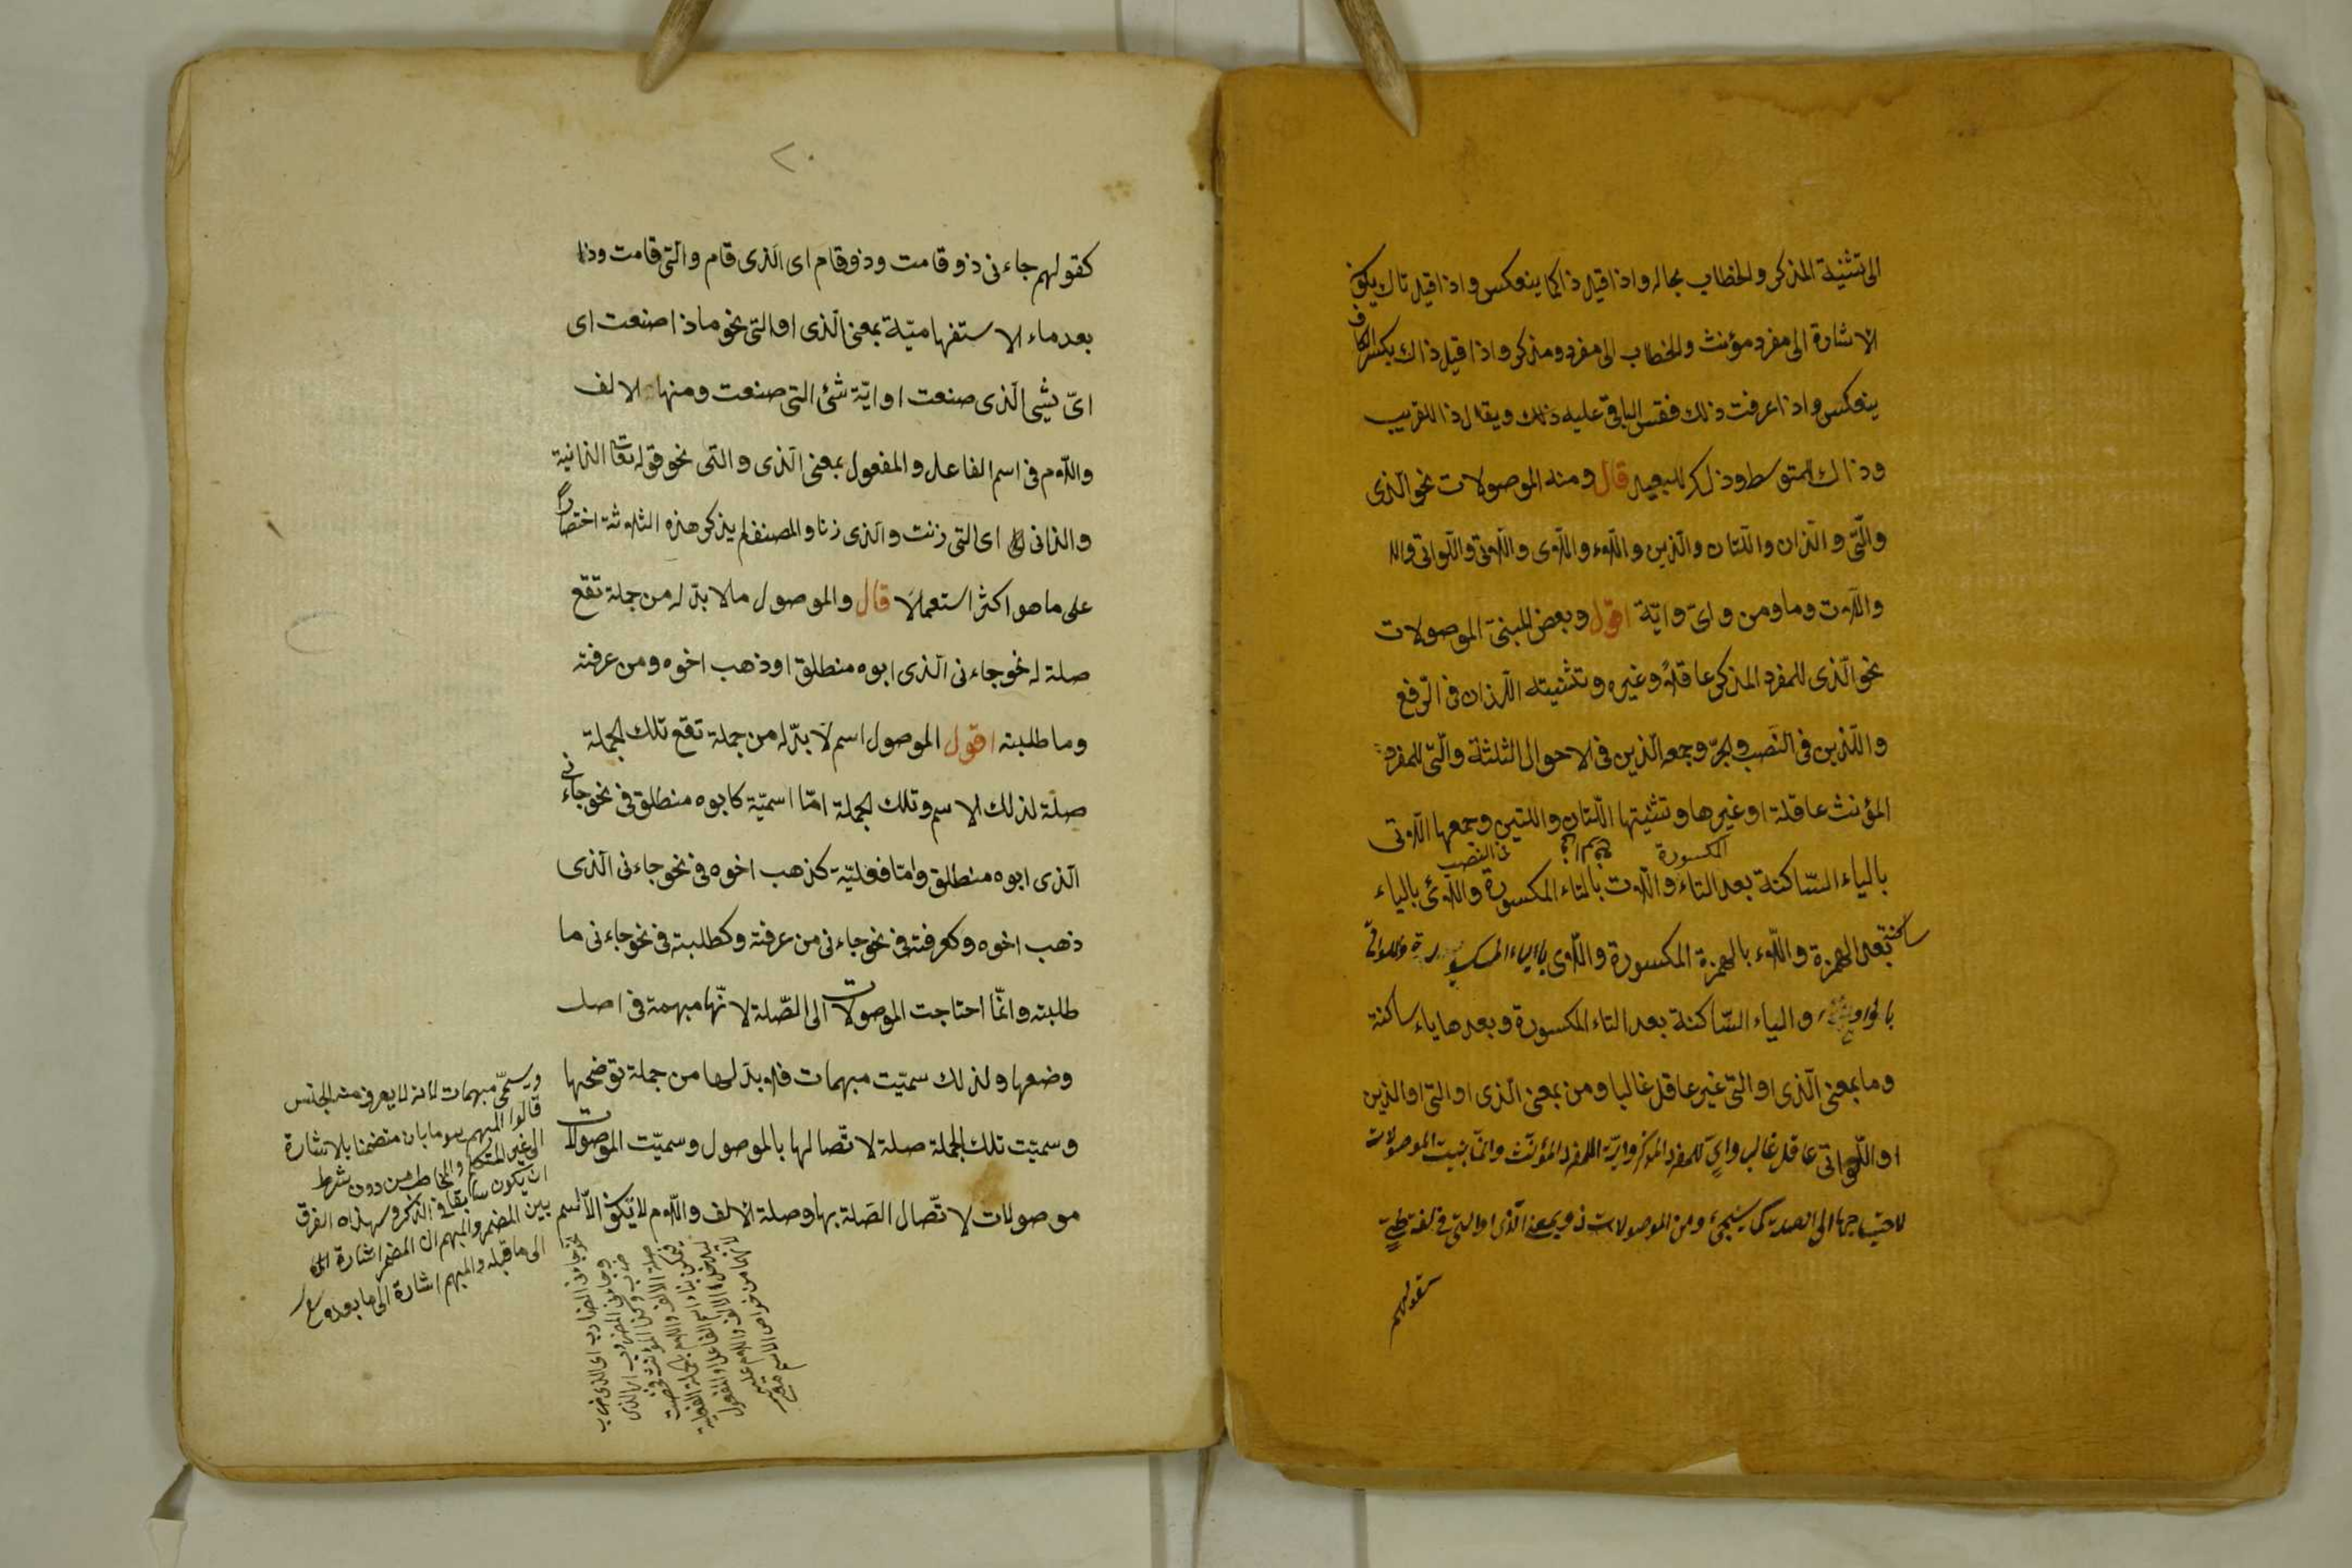 الى تثنية المذكر والخطاب بحاله واذا قيل ذاكما ينعكس واذا قيل تاك يكون
الاشارة الى مفرد مؤنث والخطاب الى مفرد ومذكر واذا قيل ذاك بكسر الكاف
ينعكس واذا عرفت ذلك فقس الباقى عليه ذلك ويقال ذا للقريب
وذاك للمتوسط وذلك للبعيد قال ومنه الموصولات نحو الذى
والّتى والّذان واللّتان والّذين واللّاء واللّاى واللّاتى واللّواتى واللا
واللّات وما ومن واىّ وايّة اقول وبعض المبنىّ الموصولات
نحو الّذى للمفرد المذكر عاقلاً وغيره وتثنيته اللّذان فى الرّفع
واللّذين فى النّصب والجرّ وجمعه الّذين فى الاحوال الثلثة والّتى للمفرد
المؤنث عاقلة او غيرها وتثنيتها اللّتان واللتين وجمعها اللّاتى
المكسورة
فى النصب
بالياء السّاكنة بعد التاء واللّات بالتاء المكسورة واللّائ بالياء
ساكنة
بعد الهمزة واللّاء بالهمزة المكسورة واللّاى بالياء المكسورة واللواتى
بالواو والياء السّاكنة بعد التاء المكسورة وبعدها ياء ساكنة
وما بمعنى الّذى او الّتى غير عاقل غالبا ومن بمعنى الّذى او الّتى او الذين
او اللّواتى عاقل غالب واىّ للمفرد المذكر وايّة للمفرد المؤنث وانّما بنيت الموصولات
لاحتياجها الى الصلة كما سيجئ ومن الموصولات ذو بمعنى الّذى او التى فى لغة طىّ
كقولهم
٢٠
كقولهم جاءنى ذو قامت وذو قام اى الّذى قام والّتى قامت وذا
بعد ماء الاستفهاميّة بمعنى الّذى او التى نحو ماذا صنعت اى
اىّ شيى الّذى صنعت او ايّة شئ التى صنعت ومنها الالف
واللّام فى اسم الفاعل والمفعول بمعنى الّذى والتى نحو قوله تعا الزانية
والزانى اى التى زنت والّذى زنا والمصنف لم يذكر هذه الثلاثة اختصارًا
على ما هو اكثر استعمالاً قال والموصول ما لا بدّ له من جملة تقع
صلة له نحو جاءنى الّذى ابوه منطلق او ذهب اخوه ومن عرفته
وما طلبته اقول الموصول اسم لا بدّ له من جملة تقع تلك الجملة
صلة لذلك الاسم وتلك الجملة امّا اسميّة كابوه منطلق فى نحو جاءنى
الّذى ابوه منطلق وامّا فعليّة كذهب اخوه فى نحو جاءنى الّذى
ذهب اخوه وكعرفته فى نحو جاءنى من عرفته وكطلبته فى نحو جاءنى ما
طلبته وانّما احتاجت الموصولات الى الصّلة لانّها مبهمة فى اصل
وضعها ولذلك سميّت مبهمات فلا بدّ لها من جملة توضحها
وسميّت تلك الجملة صلة لاتّصالها بالموصول وسميّت الموصولات
موصولات لاتّصال الصّلة بها وصلة الالف واللّام لا تكون الّا اسم
ويسمّى مبهمات لانه لا يعرف منه الجنس
قالوا المبهم هو ما بان متضمنا بالاشارة
الى غير المتكلم والمخاطب من دون شرط
ان يكون سابقا فى الذكر وبهذاه الفرق
بين المضمر والمبهم ان المضمر اشارة الى
الى ما قبله والمبهم اشارة الى ما بعده
نحو جاءنى الضارب اى الذى ضرب
وجاءنى المضروب اى الذى
صلة الالف واللام بجملة الفعلية
لانها من خواص الاسم